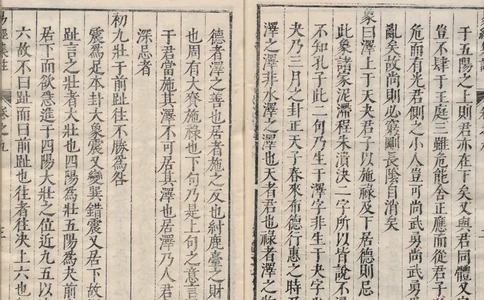 于五陽之上則君亦在下矣又與君同體又
豈不肆于王庭三雖危能舍正應而從君子
危而有光君側之小人豈可尚武勇尚武勇
亂矣故尚則必窮剛長陰自消矣
象曰澤上于天夬君子以施祿及下居德則忌
此象諸家泥潰程朱潰決二字所以皆說不
不知孔子此二句乃生于澤字非生于夬字
夬乃三月之卦正天子春來布德行惠之時
澤之澤非水澤之澤也天者君也祿者澤之
德者澤之善也居者施之反也紂鹿臺之財
也周有大賚施祿也下句乃足上句之意言
于君當施其澤不可居其澤也居澤乃人君
深忌者
初九壯于前趾往不勝為咎
震為足本卦大象震又變巽錯震又居下故
趾言之壯者大壯也四陽為壯五陽為夬前
趾于下而欲急進于四陽大壯之位近九五以
六故不曰趾而曰前趾也往者往夬上六也
易經集註
卷之五